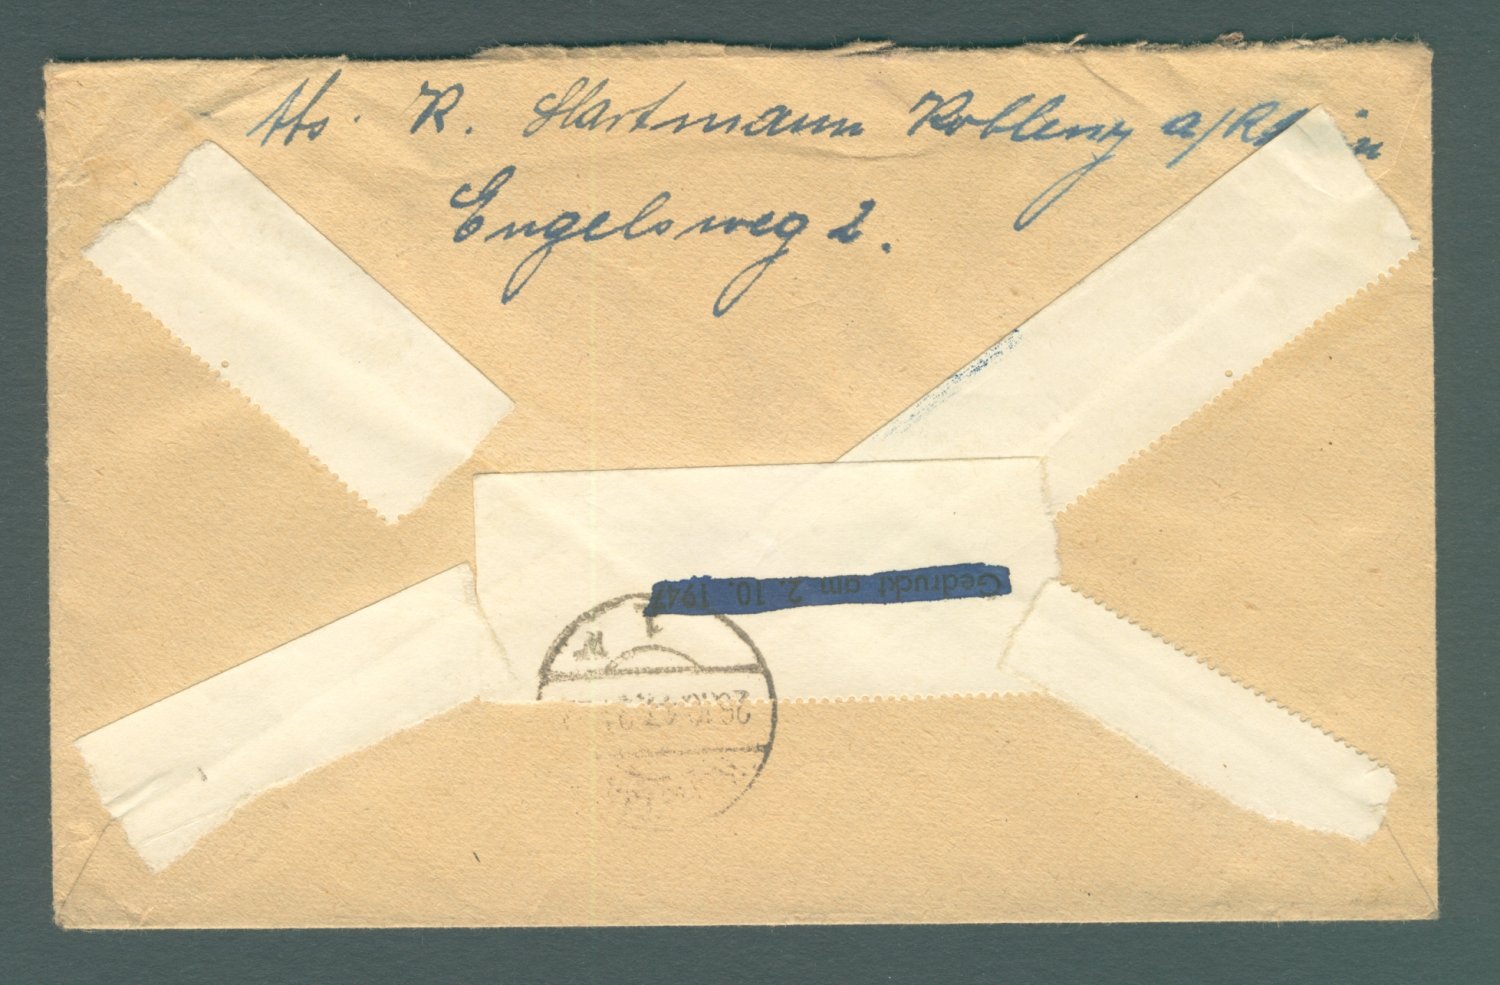 Abs. R. Hartmann Koblenz a/Rhein
Engelsweg 2.
Gedruckt am 2. 10. 1947
26.10.47